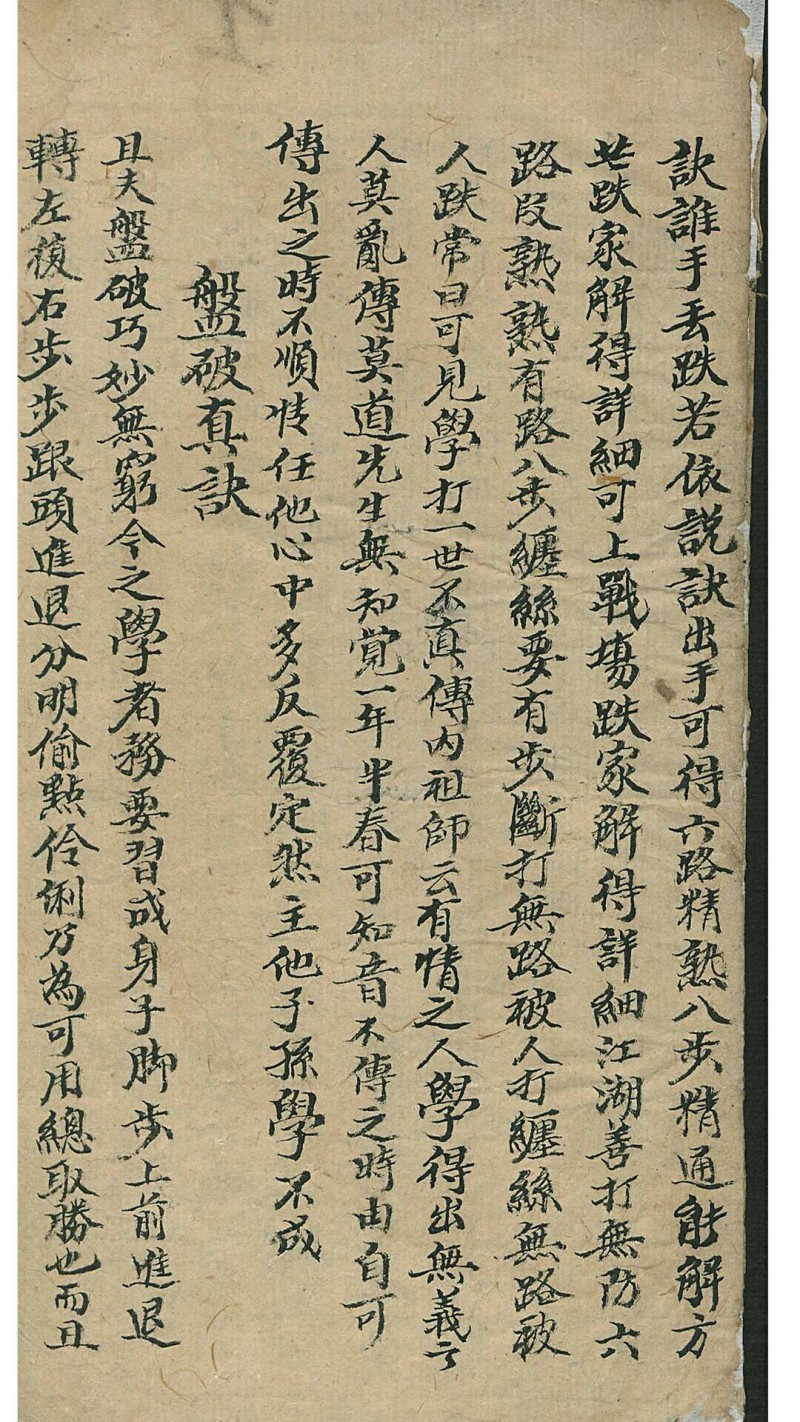 訣誰手丟跌若依說訣出手可得六路精熟八步精通能解方
芒跌家解得詳細可上戰場跌家解得詳細江湖善打無防六
路段熟熟有路八步纏絲要有步斷打無路被人打纏絲無路被
人跌常曰可見學打一世不真傳內祖師云有情之人學得出無義之
人莫亂傳莫道先生無知覚一年半春可知音不傳之時由自可
傳出之時不順情任他心中多反覆定然主他子孫學不成
盤破真訣
且夫盤破巧妙無窮今之學者務要習成身子脚步上前進退
轉左復右步步跟頭進退分明偷點伶俐乃為可用總取勝也而且